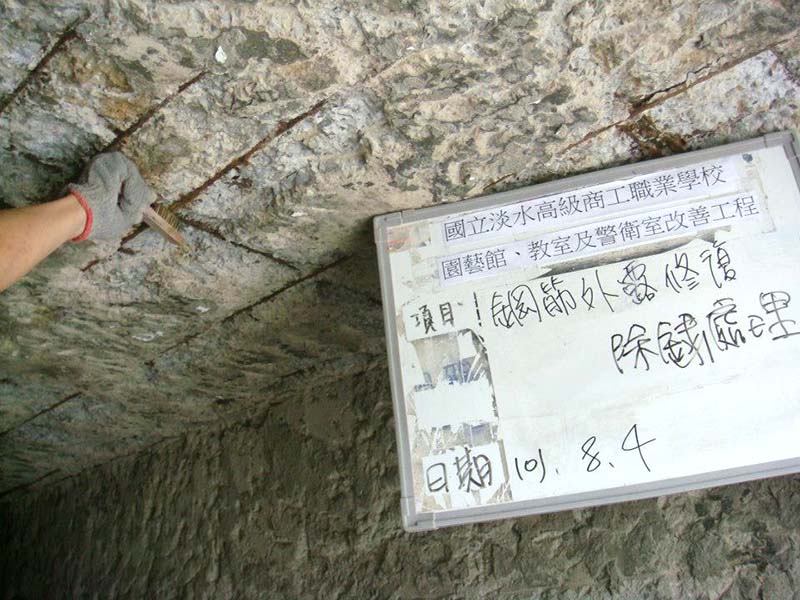 國立淡水高級商工職業學校
園藝館、教室及警衛室改善工程
項目：鋼筋外露修復
除銹處理
日期 101.8.4